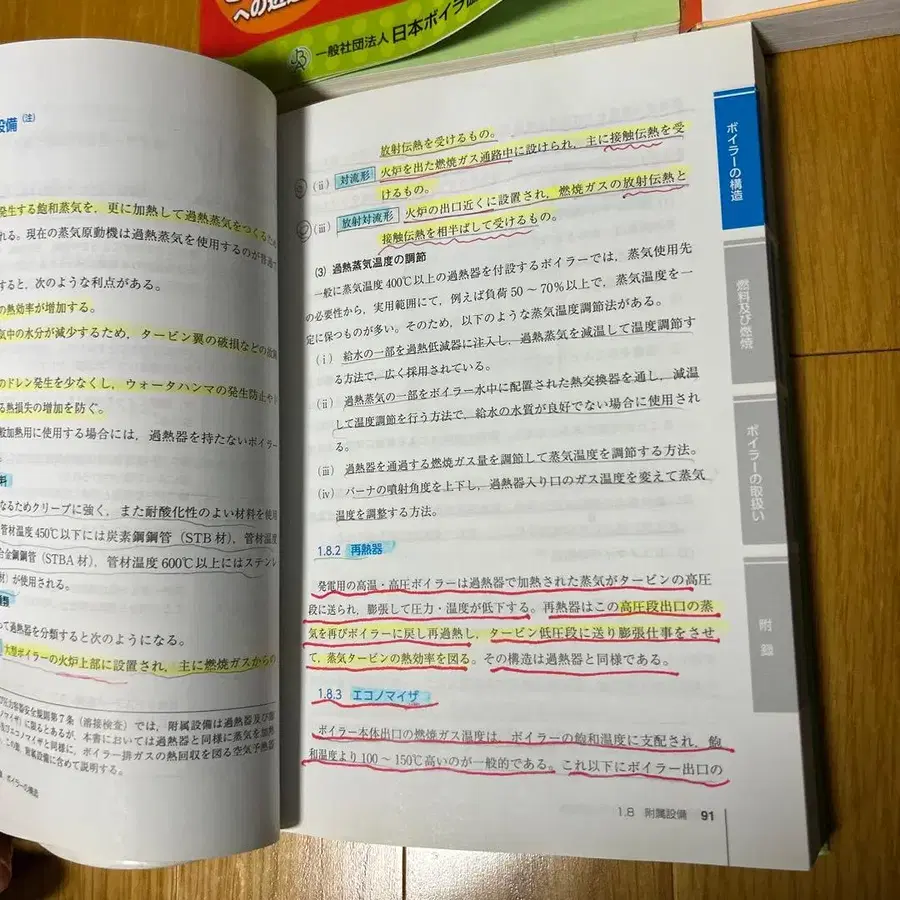 への近道
一般社団法人 日本ボイラ協
設備(注)
発生する飽和蒸気を，更に加熱して過熱蒸気をつくるため
れる。現在の蒸気原動機は過熱蒸気を使用するのが普通で
すると，次のような利点がある。
の熱効率が増加する。
気中の水分が減少するため，タービン翼の破損などの故障
のドレン発生を少なくし，ウォータハンマの発生防止や
る熱損失の増加を防ぐ。
般加熱用に使用する場合には，過熱器を持たないボイラー
料
なるためクリープに強く，また耐酸化性のよい材料を使用
管材温度450℃以下には炭素鋼鋼管（STB材），管材温度
合金鋼鋼管（STBA材），管材温度600℃以上にはステンレ
材）が使用される。
種類
って過熱器を分類すると次のようになる。
大型ボイラーの火炉上部に設置され，主に燃焼ガスからの
力容器安全規則第7条（溶接検査）では，附属設備は過熱器及び節
ノマイザ）に限るとあるが，本書においては過熱器と同様に蒸気を加熱
及びエコノマイザと同様に，ボイラー排ガスの熱回収を図る空気予熱器
，この章，附属設備に含めて説明する。
ボイラーの構造
放射伝熱を受けるもの。
(ⅱ) 対流形 火炉を出た燃焼ガス通路中に設けられ，主に接触伝熱を受
けるもの。
(ⅲ) 放射対流形 火炉の出口近くに設置され，燃焼ガスの放射伝熱と
接触伝熱を相半ばして受けるもの。
(3) 過熱蒸気温度の調節
一般に蒸気温度400℃以上の過熱器を付設するボイラーでは，蒸気使用先
の必要性から，実用範囲にて，例えば負荷50～70％以上で，蒸気温度を一
定に保つものが多い。そのため，以下のような蒸気温度調節法がある。
(ⅰ) 給水の一部を過熱低減器に注入し，過熱蒸気を減温して温度調節す
る方法で，広く採用されている。
(ⅱ) 過熱蒸気の一部をボイラー水中に配置された熱交換器を通し，減温
して温度調節を行う方法で，給水の水質が良好でない場合に使用され
る。
(ⅲ) 過熱器を通過する燃焼ガス量を調節して蒸気温度を調節する方法。
(ⅳ) バーナの噴射角度を上下し，過熱器入り口のガス温度を変えて蒸気
温度を調整する方法。
1.8.2 再熱器
発電用の高温・高圧ボイラーは過熱器で加熱された蒸気がタービンの高圧
段に送られ，膨張して圧力・温度が低下する。再熱器はこの高圧段出口の蒸
気を再びボイラーに戻し再過熱し，タービン低圧段に送り膨張仕事をさせ
て，蒸気タービンの熱効率を図る。その構造は過熱器と同様である。
1.8.3 エコノマイザ
ボイラー本体出口の燃焼ガス温度は，ボイラーの飽和温度に支配され，飽
和温度より100～150℃高いのが一般的である。これ以下にボイラー出口の
1.8 附属設備 91
ボイラーの構造
燃料及び燃焼
ボイラーの取扱い
附録